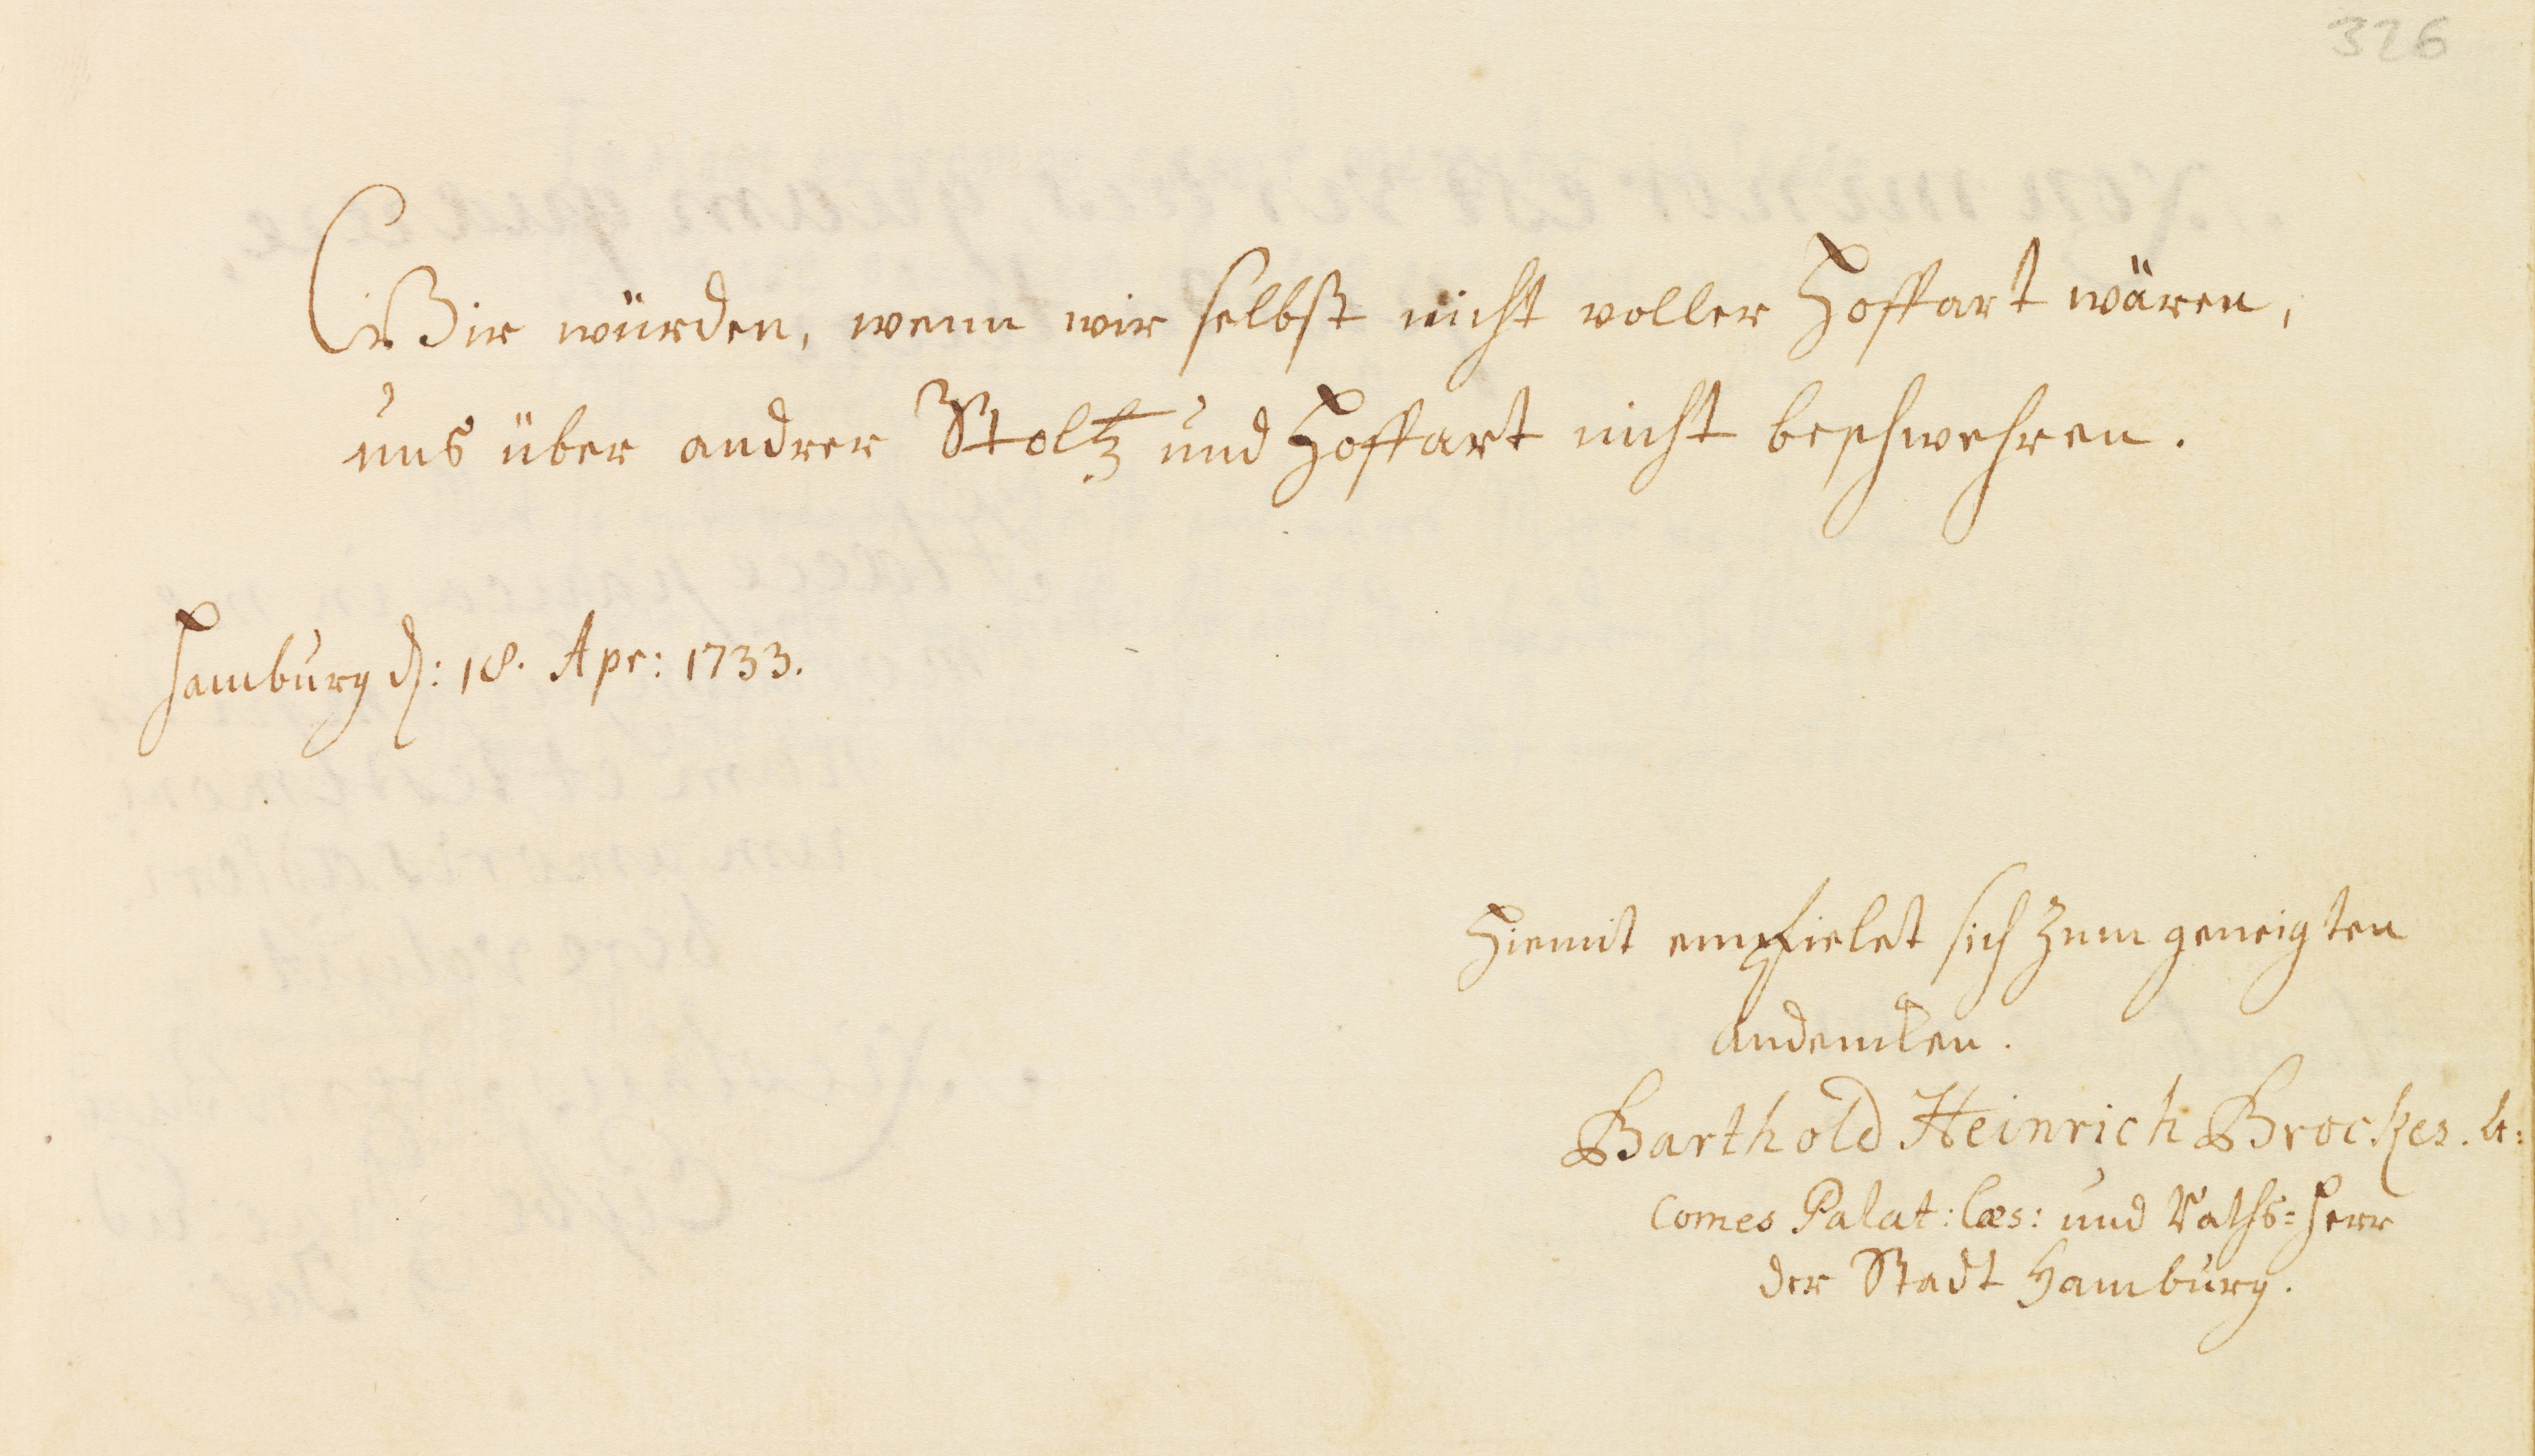 326
Wir würden, wenn wir selbst nicht voller Hoffart wären,
uns über andrer Stoltz und Hoffart nicht beschwehren.
Hamburg d: 18. Apr: 1733.
Hiemit empfielet sich zum geneigten
andencken.
Barthold Heinrich Brockes. Lt:
Comes Palat: Cæs: und Raths-Herr
der Stadt Hamburg.